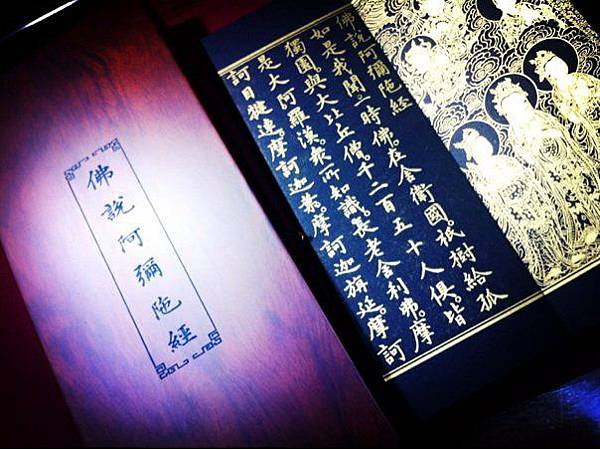 佛說阿彌陁經
佛說阿彌陁經
如是我聞。一時佛。在舍衛國。祇樹給孤
獨園。與大比丘僧。千二百五十人俱。皆
是大阿羅漢。眾所知識。長老舍利弗。摩
訶目犍連。摩訶迦葉。摩訶迦旃延。摩訶